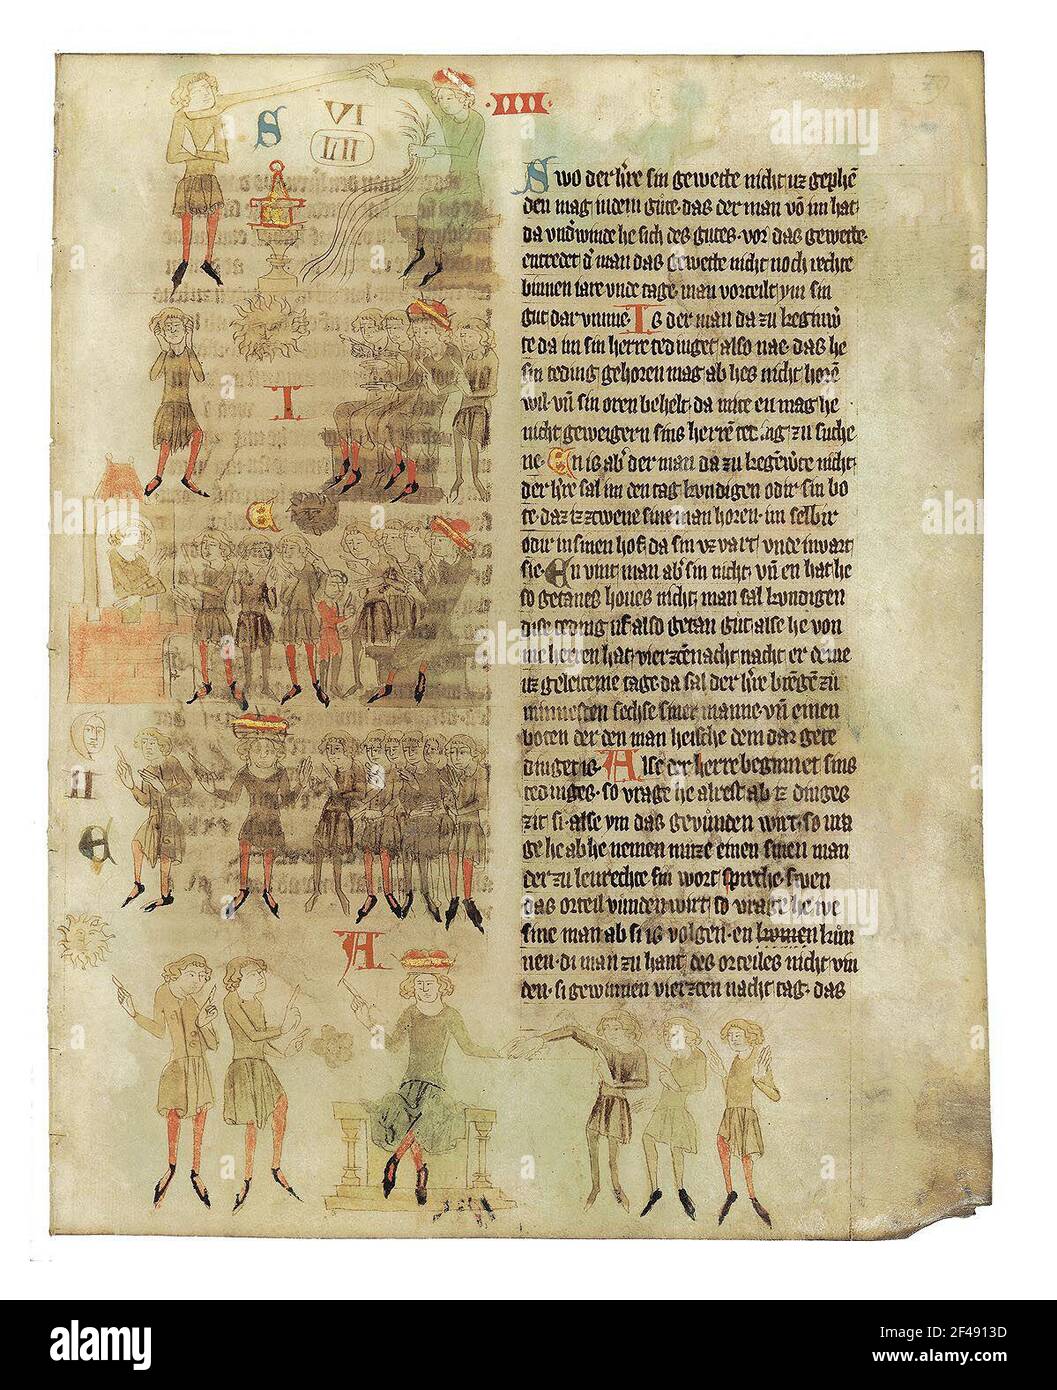 IIII
VI
LIII
S
Swo der h're sin gewette nicht uz gephē
den mag in dem gute · das der man vō im hat ·
da undwinde he sich des gutes · vor das gewette ·
entredet d' man das gewette nicht noch rechte
binnen iare unde tage · man vorteilt ym sin
gut dar umme · Is der man da zu keginw'
te da im sin herre tedinget also nae · das he
sin teding gehoren mag ab hes nicht horē
wil · vn̄ sin oren behelt · da mite en mag he
nicht geweigern sins herrē tag zu suche
ne · En is ab' der man da zu kegēw'te nicht
der h're sal im den tag kundigen odir sin bo
te · daz iz zwene sine man horen · im selbir
odir in sinen hof da sin uzvart unde invart
sie · En vint man ab' sin nicht · vn̄ en hat he
so getanes houes nicht · man sal kundigen
dise teding uf also getan gut alse he von
me herren hat · vierzcēnacht nacht er deme
uz geleiteme tage · da sal der h're brēgē zū
minnesten sechse siner manne · vn̄ einen
boten der den man heische dem dar gete
dinget is · Alse der herre beginnet sins
tedinges · so vrage he alrest ab iz dinges
zit si · alse ym das gevunden wirt · so vra
ge he ab he nemen muze einen sinen man
der zu lenrechte sin wort spreche · swen
das orteil vunden wirt so vrage he ive
sine man ab si is volgen · en komen kun
nen · di man zu hant des orteiles nicht vin
den · si gewinnen vierzcen nacht tag · das
I
E
II
E
A
alamy
Image ID: 2F4913D
www.alamy.com